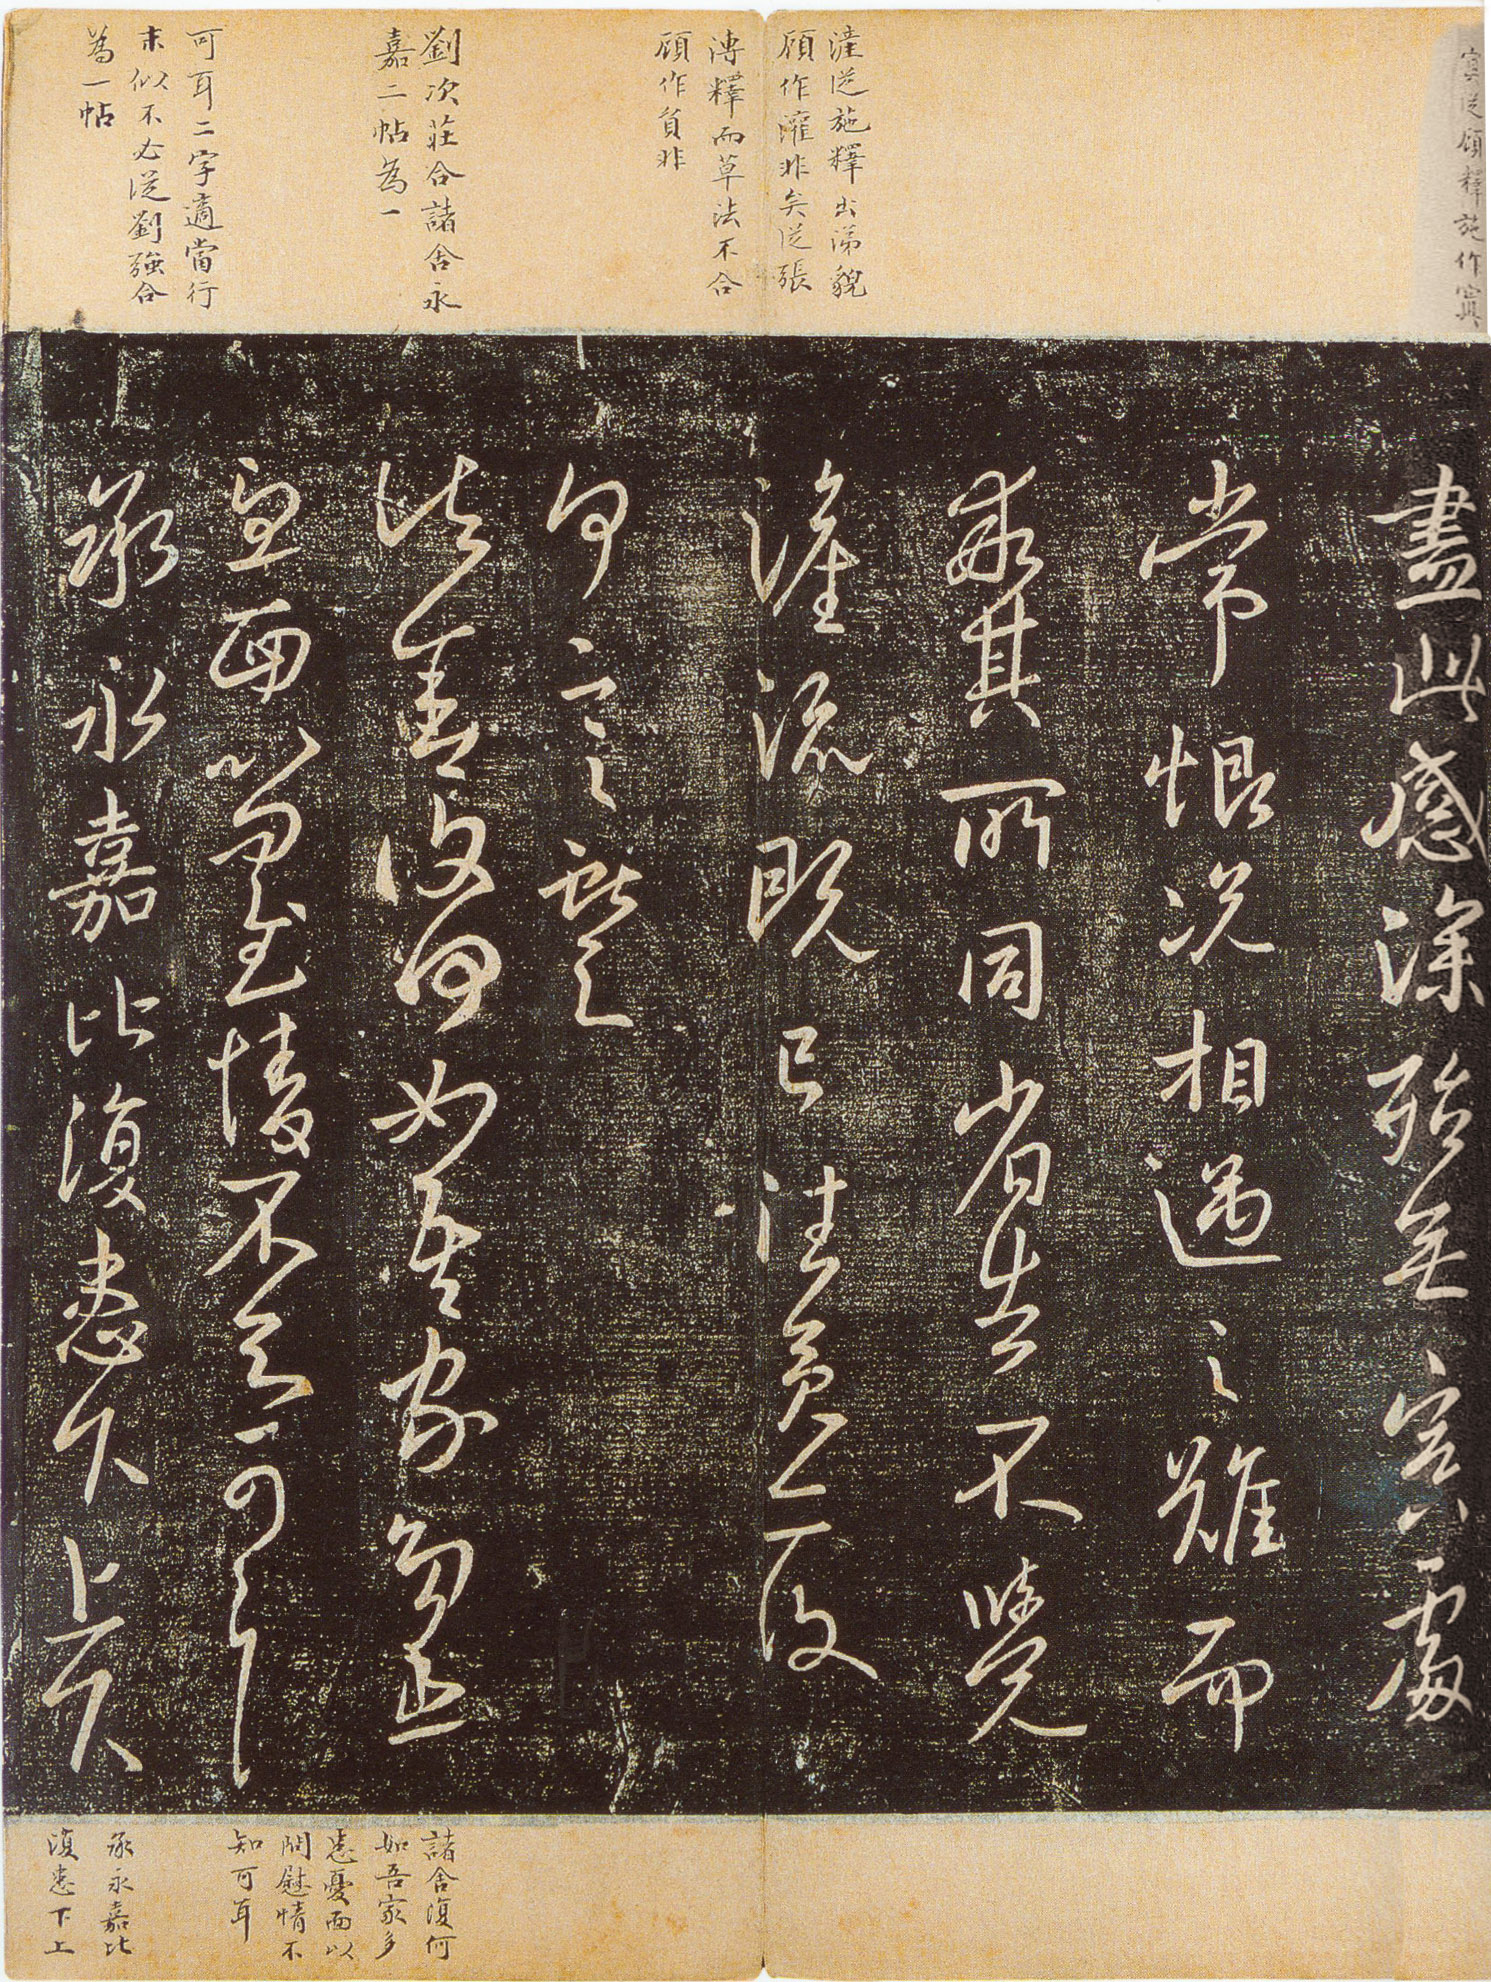 從顧釋施作
漼從施釋出涕貌
顧作灌非矣從張
溥釋而草法不合
顧作負非
劉次莊合諸舍永
嘉二帖為一
可耳二字適當行
末似不必從劉強合
為一帖
盡此感深殆無置處
常恨況相遇之難而
乖其所同省告不覺
漼流既已往矣亦復
何言獻之
諸舍復何如吾家多患
憂面以問慰情不知可耳
承永嘉比復患下上
諸舍復何
如吾家多
患憂面以
問慰情不
知可耳
承永嘉比
復患下上